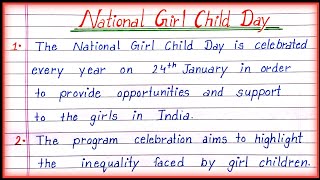 National Girl Child Day
1. The National Girl Child Day is celebrated
every year on 24th January in order
to provide opportunities and support
to the girls in India.
2. The program celebration aims to highlight
the inequality faced by girl children.